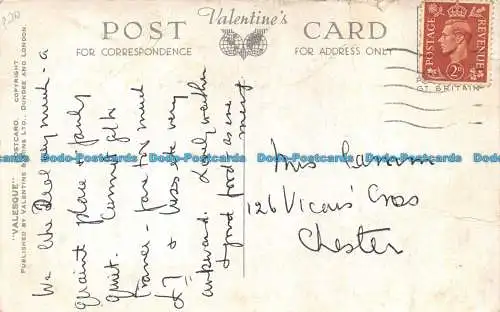 P.20
POST Valentine's CARD
FOR CORRESPONDENCE
FOR ADDRESS ONLY
"VALESQUE" POSTCARD. COPYRIGHT.
PUBLISHED BY VALENTINE & SONS LTD., DUNDEE AND LONDON.
POSTAGE REVENUE
2D
GT. BRITAIN
We like Deal very much - a
quaint place & fairly
quiet. Cannot get to
France - fare too much
£7 & bus site very
awkward. Lovely weather
& good food as we
Miss
126 Vicars Cross
Chester
Dodo-Postcards Dodo-Postcards Dodo-Postcards Dodo-Postcards Dodo-Postcards Dodo-Postcards